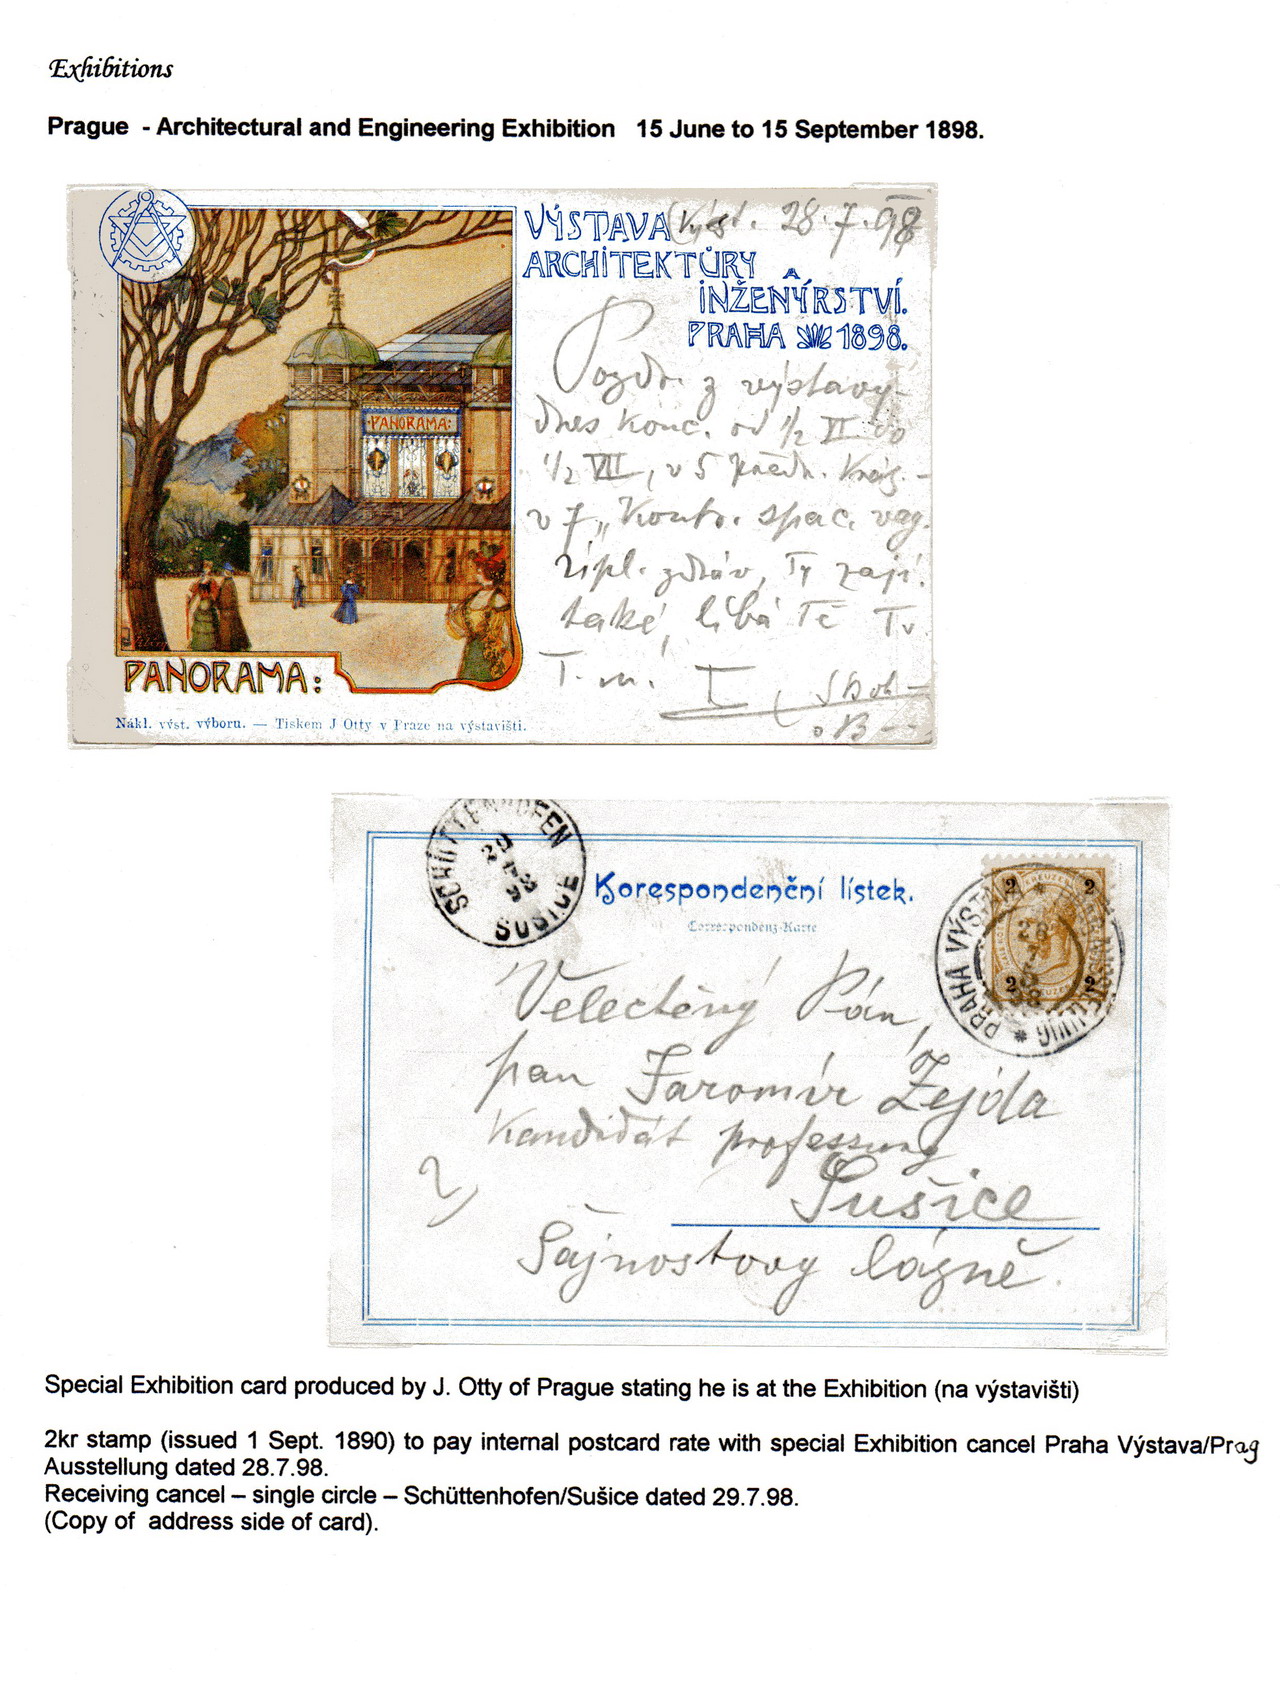 Exhibitions
Prague - Architectural and Engineering Exhibition 15 June to 15 September 1898.
VÝSTAVA
28.7.98
ARCHITEKTŮRY A
INŽENÝRSTVÍ.
PRAHA 1898.
PANORAMA:
Pozdr. z výstavy
dnes konc. od 1/2 VI do
1/2 VII, v 5
v 7 „
zdráv, Ty
také, líbá Tě Tv.
T. m.
PANORAMA:
Nákl. výst. výboru. — Tiskem J Otty v Praze na výstavišti.
SCHÜTTENHOFEN
29
7
98
SUŠICE
Korespondenční lístek.
Correspondenz-Karte
2 2
2 2
PRAHA VÝSTAVA
28
7
98
Velectěný Pán,
pan Jaromír Zejda
Kandidát professury
Sušice
Šajnostovy lázně.
Special Exhibition card produced by J. Otty of Prague stating he is at the Exhibition (na výstavišti)
2kr stamp (issued 1 Sept. 1890) to pay internal postcard rate with special Exhibition cancel Praha Výstava/Prag
Ausstellung dated 28.7.98.
Receiving cancel – single circle – Schüttenhofen/Sušice dated 29.7.98.
(Copy of address side of card).